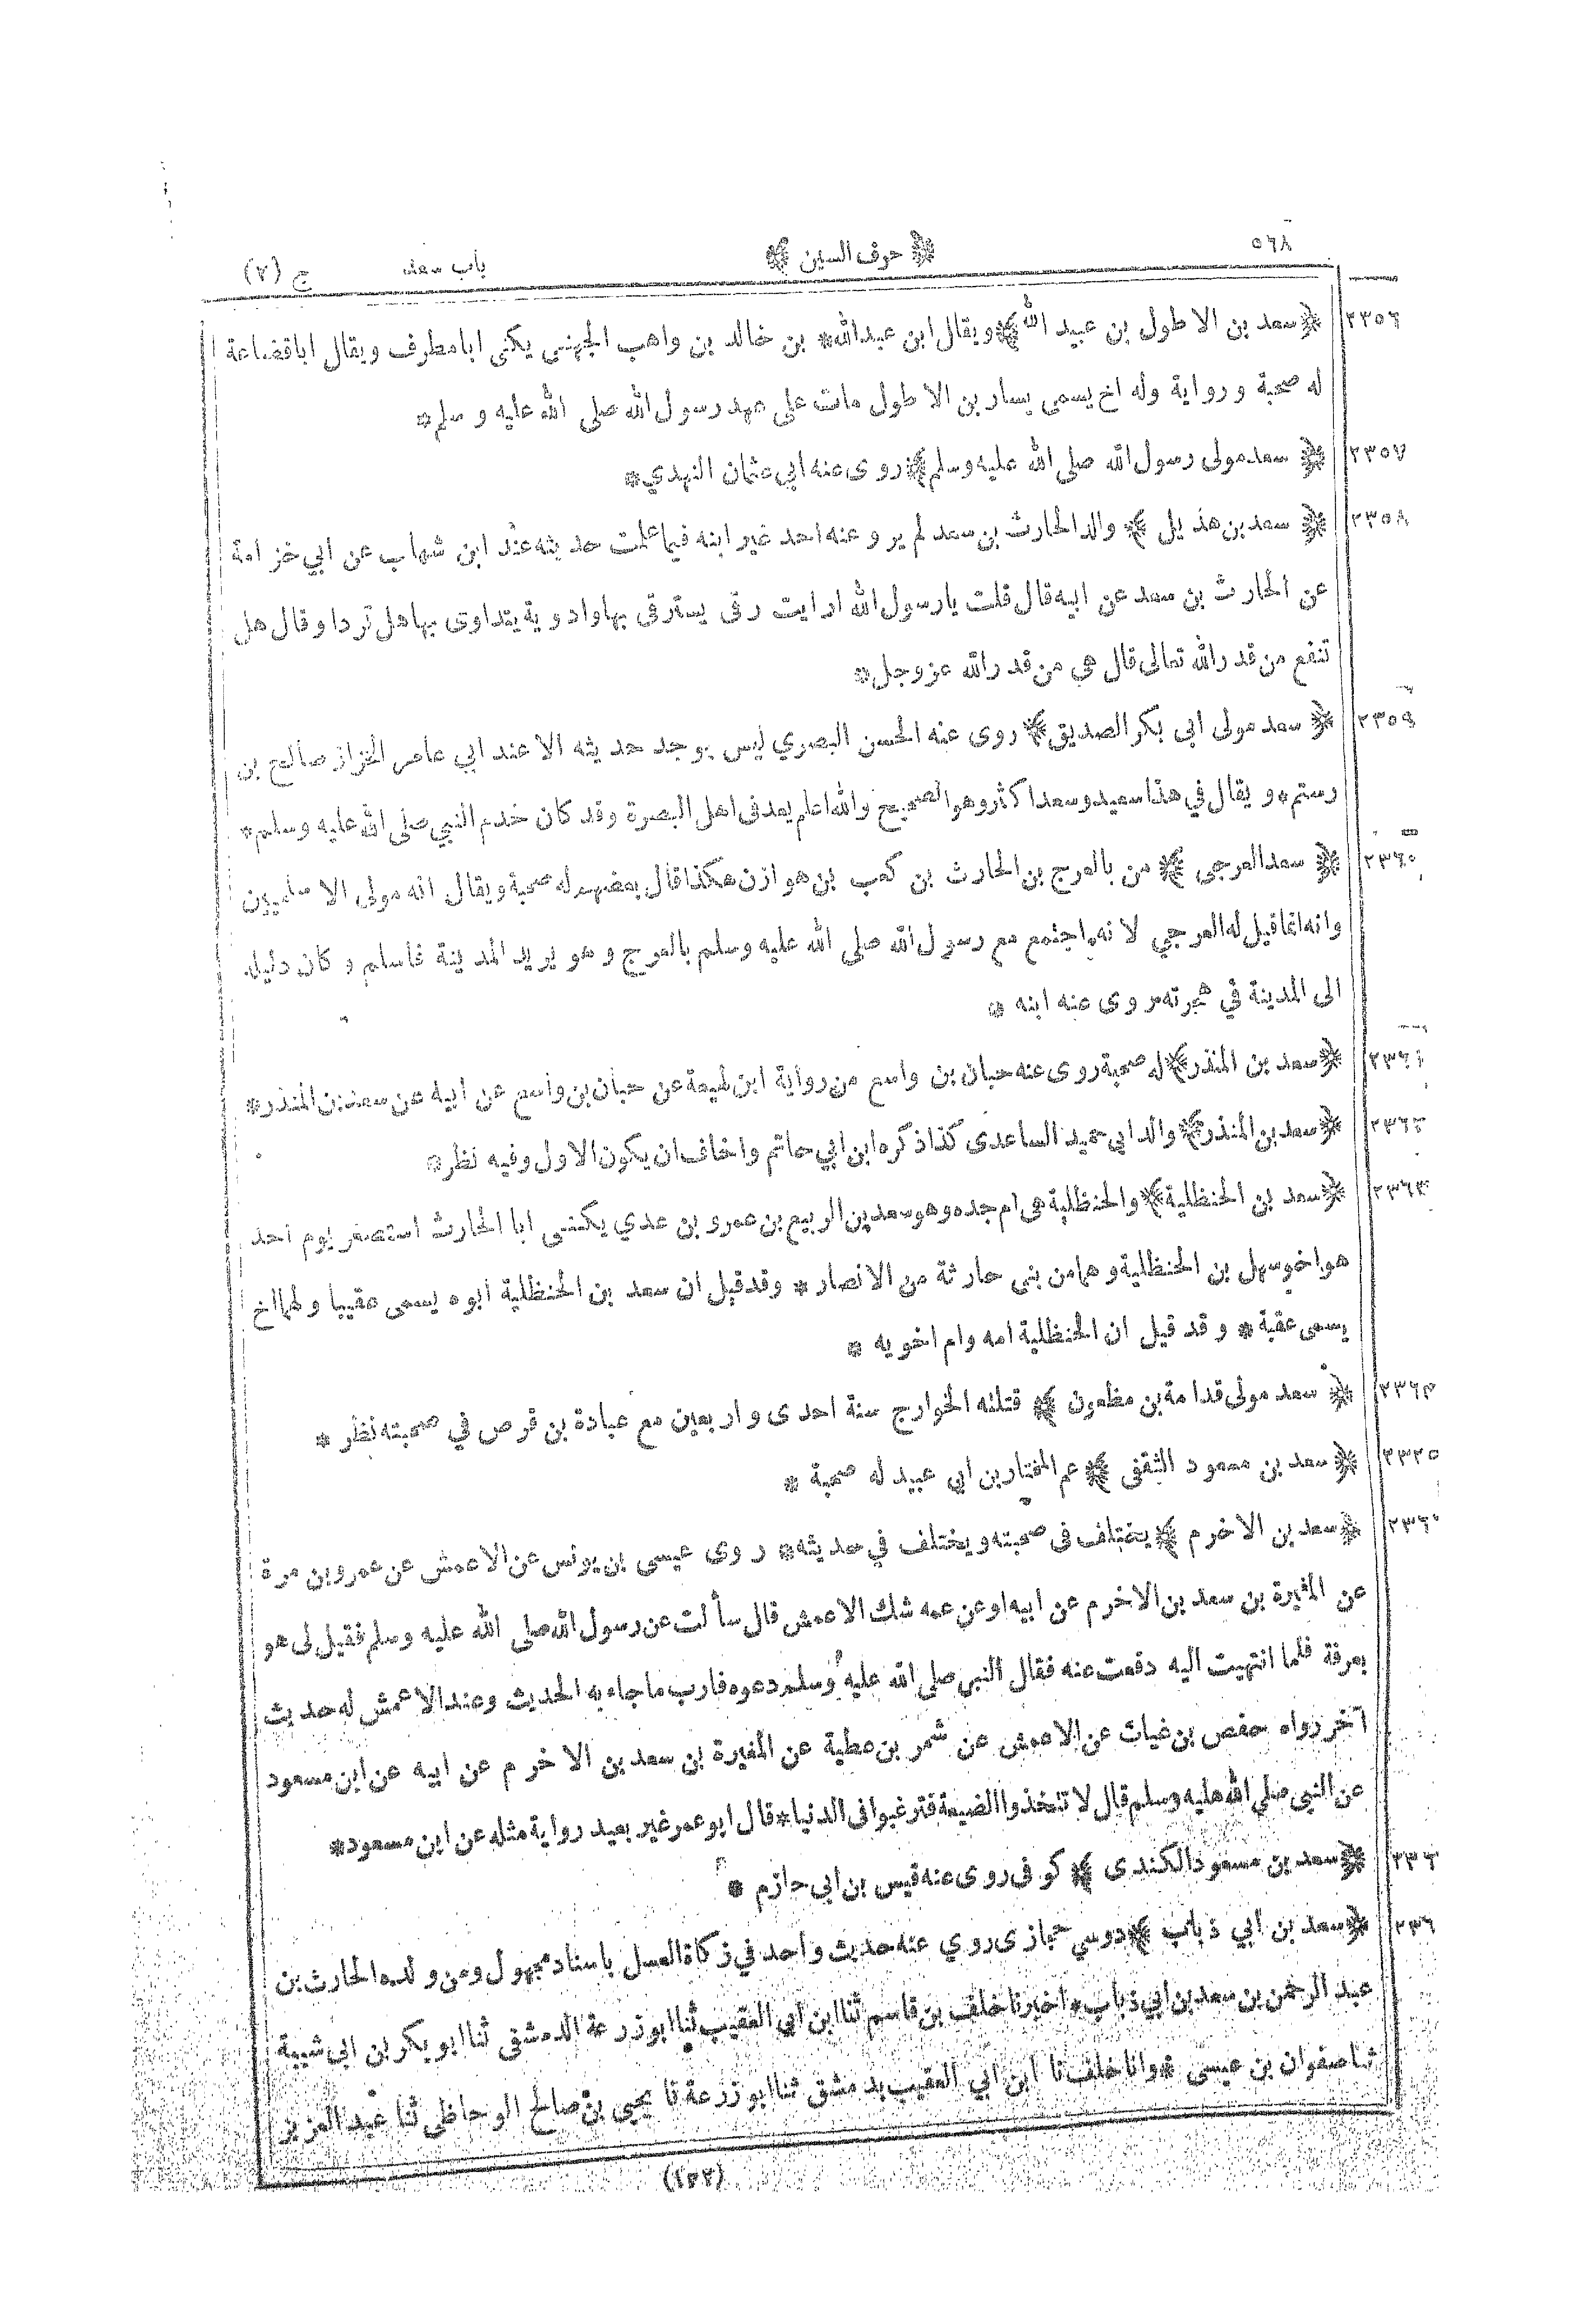 ٥٦٨ ﴿ حرف السين ﴾ باب سعد ج (٢)
٢٣٥٦ ﴿سعد بن الاطول بن عبيد الله﴾ ويقال ابن عبدالله* بن خالد بن واهب الجهنى يكنى ابامطرف ويقال اباقضاعة
له صحبة ورواية وله اخ يسمى يسار بن الاطول مات على عهد رسول الله صلى الله عليه وسلم*
٢٣٥٧ ﴿ سعد مولى رسول الله صلى الله عليه وسلم﴾ روى عنه ابي عثمان النهدي*
٢٣٥٨ ﴿ سعد بن هذيل ﴾ والد الحارث بن سعد لم يرو عنه احد غير ابنه فيما علمت حديثه عند ابن شهاب عن ابي خزامة
عن الحارث بن سعد عن ابيه قال قلت يا رسول الله ارايت رقى يسترقى بها وادوية يتداوى بها هل ترد او قال هل
تنفع من قدر الله تعالى قال هي من قدر الله عزوجل*
٢٣٥٩ ﴿ سعد مولى ابى بكر الصديق﴾ روى عنه الحسن البصري ليس يوجد حديثه الا عند ابي عامر الخزاز صالح بن
رستم* ويقال في هذا سعيد وسعد اكثر وهو الصحيح والله اعلم يعد فى اهل البصرة وقد كان خدم النبي صلى الله عليه وسلم*
٢٣٦٠ ﴿ سعد العرجى ﴾ من بالعرج بن الحارث بن كعب بن هوازن هكذا قال بعضهم له صحبة ويقال انه مولى الاسلميين
وانه انما قيل له العرجي لانه اجتمع مع رسول الله صلى الله عليه وسلم بالعرج وهو يريد المدينة فاسلم وكان دليله
الى المدينة في هجرته روى عنه ابنه *
٢٣٦١ ﴿سعد بن المنذر﴾ له صحبة روى عنه حبان بن واسع من رواية ابن لهيعة عن حبان بن واسع عن ابيه عن سعد بن المنذر*
٢٣٦٢ ﴿سعد بن المنذر﴾ والد ابى حميد الساعدى كذا ذكره ابن ابي حاتم واخاف ان يكون الاول وفيه نظر*
٢٣٦٣ ﴿سعد بن الحنظلية﴾ والحنظلية هى ام جده وهو سعد بن الربيع بن عمرو بن عدي يكننى ابا الحارث استصغر يوم احد
هو اخو سهل بن الحنظلية وهما من بنى حارثة من الانصار* وقد قيل ان سعد بن الحنظلية ابوه يسمى عقيبا ولهما اخ
يسمى عقبة* وقد قيل ان الحنظلية امه وام اخويه *
٢٣٦٤ ﴿ سعد مولى قدامة بن مظعون ﴾ قتلته الخوارج سنة احدى واربعين مع عبادة بن قرص في صحبته نظر *
٢٣٢٥ ﴿ سعد بن مسعود الثقفى ﴾ عم المختار بن ابي عبيد له صحبة *
٢٣٦ ﴿سعد بن الاخرم ﴾ يختلف فى صحبته ويختلف في حديثه* روى عيسى بن يونس عن الاعمش عن عمرو بن مرة
عن المغيرة بن سعد بن الاخرم عن ابيه او عن عمه شك الاعمش قال سألت عن رسول الله صلى الله عليه وسلم فقيل لى هو
بعرفة فلما انتهيت اليه دفعت عنه فقال النبي صلى الله عليه وسلم دعوه فارب ما جاء به الحديث وعند الاعمش له حديث
آخر رواه حفص بن غياث عن الاعمش عن شمر بن عطية عن المغيرة بن سعد بن الاخرم عن ابيه عن ابن مسعود
عن النبي صلى الله عليه وسلم قال لا تتخذوا الضيعة فترغبوا فى الدنيا* قال ابو عمر غير بعيد رواية مثله عن ابن مسعود*
٢٣٦ ﴿سعد بن مسعود الكندى ﴾ كوفى روى عنه قيس بن ابى حازم *
٢٣٦ ﴿سعد بن ابي ذباب ﴾ دوسي حجازى روي عنه حديث واحد في زكاة العسل باسناد مجهول ومن ولده الحارث بن
عبد الرحمن بن سعد بن ابي ذباب* اخبرنا خلف بن قاسم ثنا ابن ابي العقيب ثنا ابو زرعة الدمشقى ثنا ابو بكر بن ابى شيبة
ثنا صفوان بن عيسى *وانا خلف نا ابن ابي العقيب بدمشق ثنا ابو زرعة نا يحيى بن صالح الوحاظى ثنا عبد العزيز